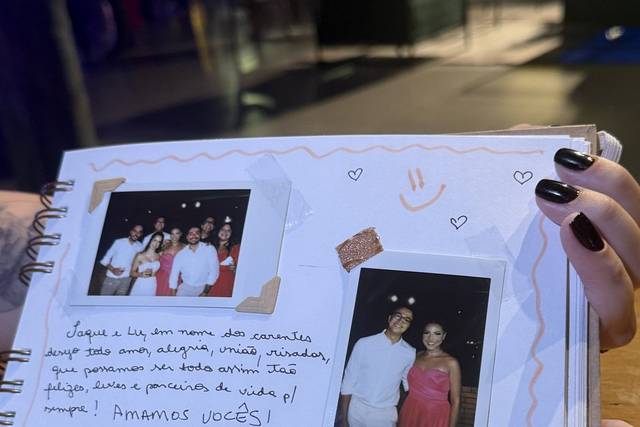 Jaque e Lu, em nome dos carentes
desejo todo amor, alegria, união, risadas,
que possamos ser todo assim tão
felizes, leves e parceiros de vida p/
sempre! AMAMOS VOCÊS!